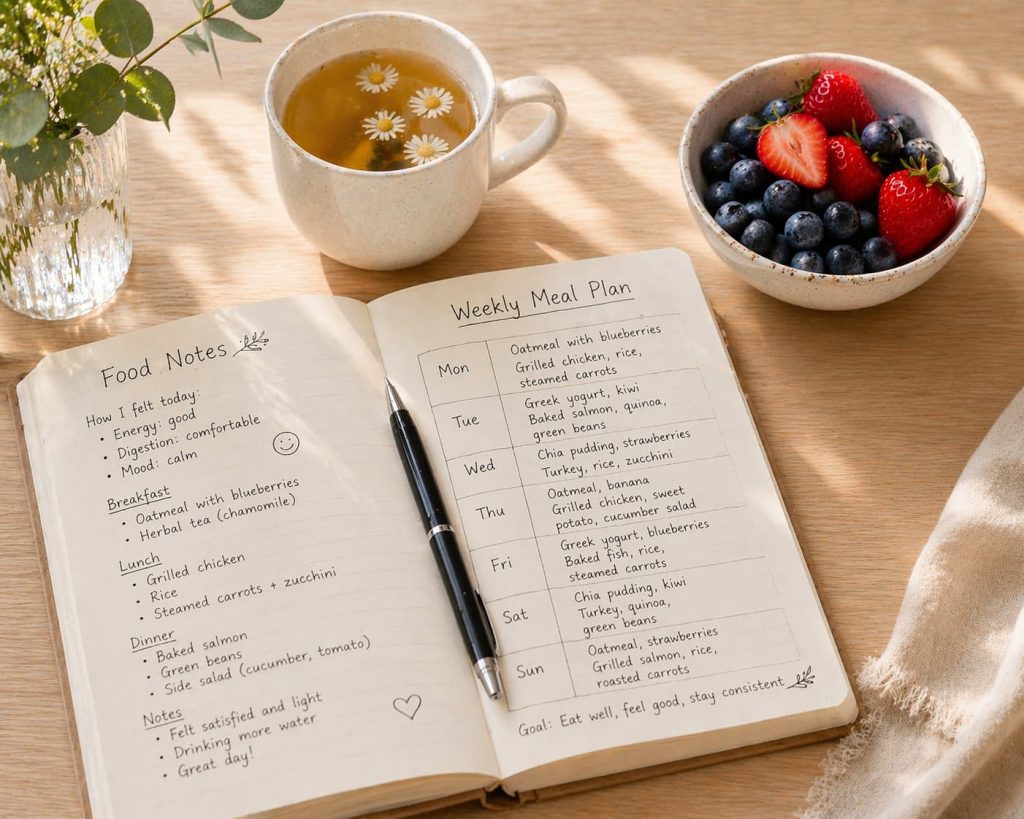 Food Notes
How I felt today:
• Energy: good
• Digestion: comfortable
• Mood: calm
Breakfast
• Oatmeal with blueberries
• Herbal tea (chamomile)
Lunch
• Grilled chicken
• Rice
• Steamed carrots + zucchini
Dinner
• Baked salmon
• Green beans
• Side salad (cucumber, tomato)
Notes
• Felt satisfied and light
• Drinking more water
• Great day!
Weekly Meal Plan
Mon
Oatmeal with blueberries
Grilled chicken, rice,
steamed carrots
Tue
Greek yogurt, kiwi
Baked salmon, quinoa,
green beans
Wed
Chia pudding, strawberries
Turkey, rice, zucchini
Thu
Oatmeal, banana
Grilled chicken, sweet
potato, cucumber salad
Fri
Greek yogurt, blueberries
Baked fish, rice,
steamed carrots
Sat
Chia pudding, kiwi
Turkey, quinoa,
green beans
Sun
Oatmeal, strawberries
Grilled salmon, rice,
roasted carrots
Goal: Eat well, feel good, stay consistent